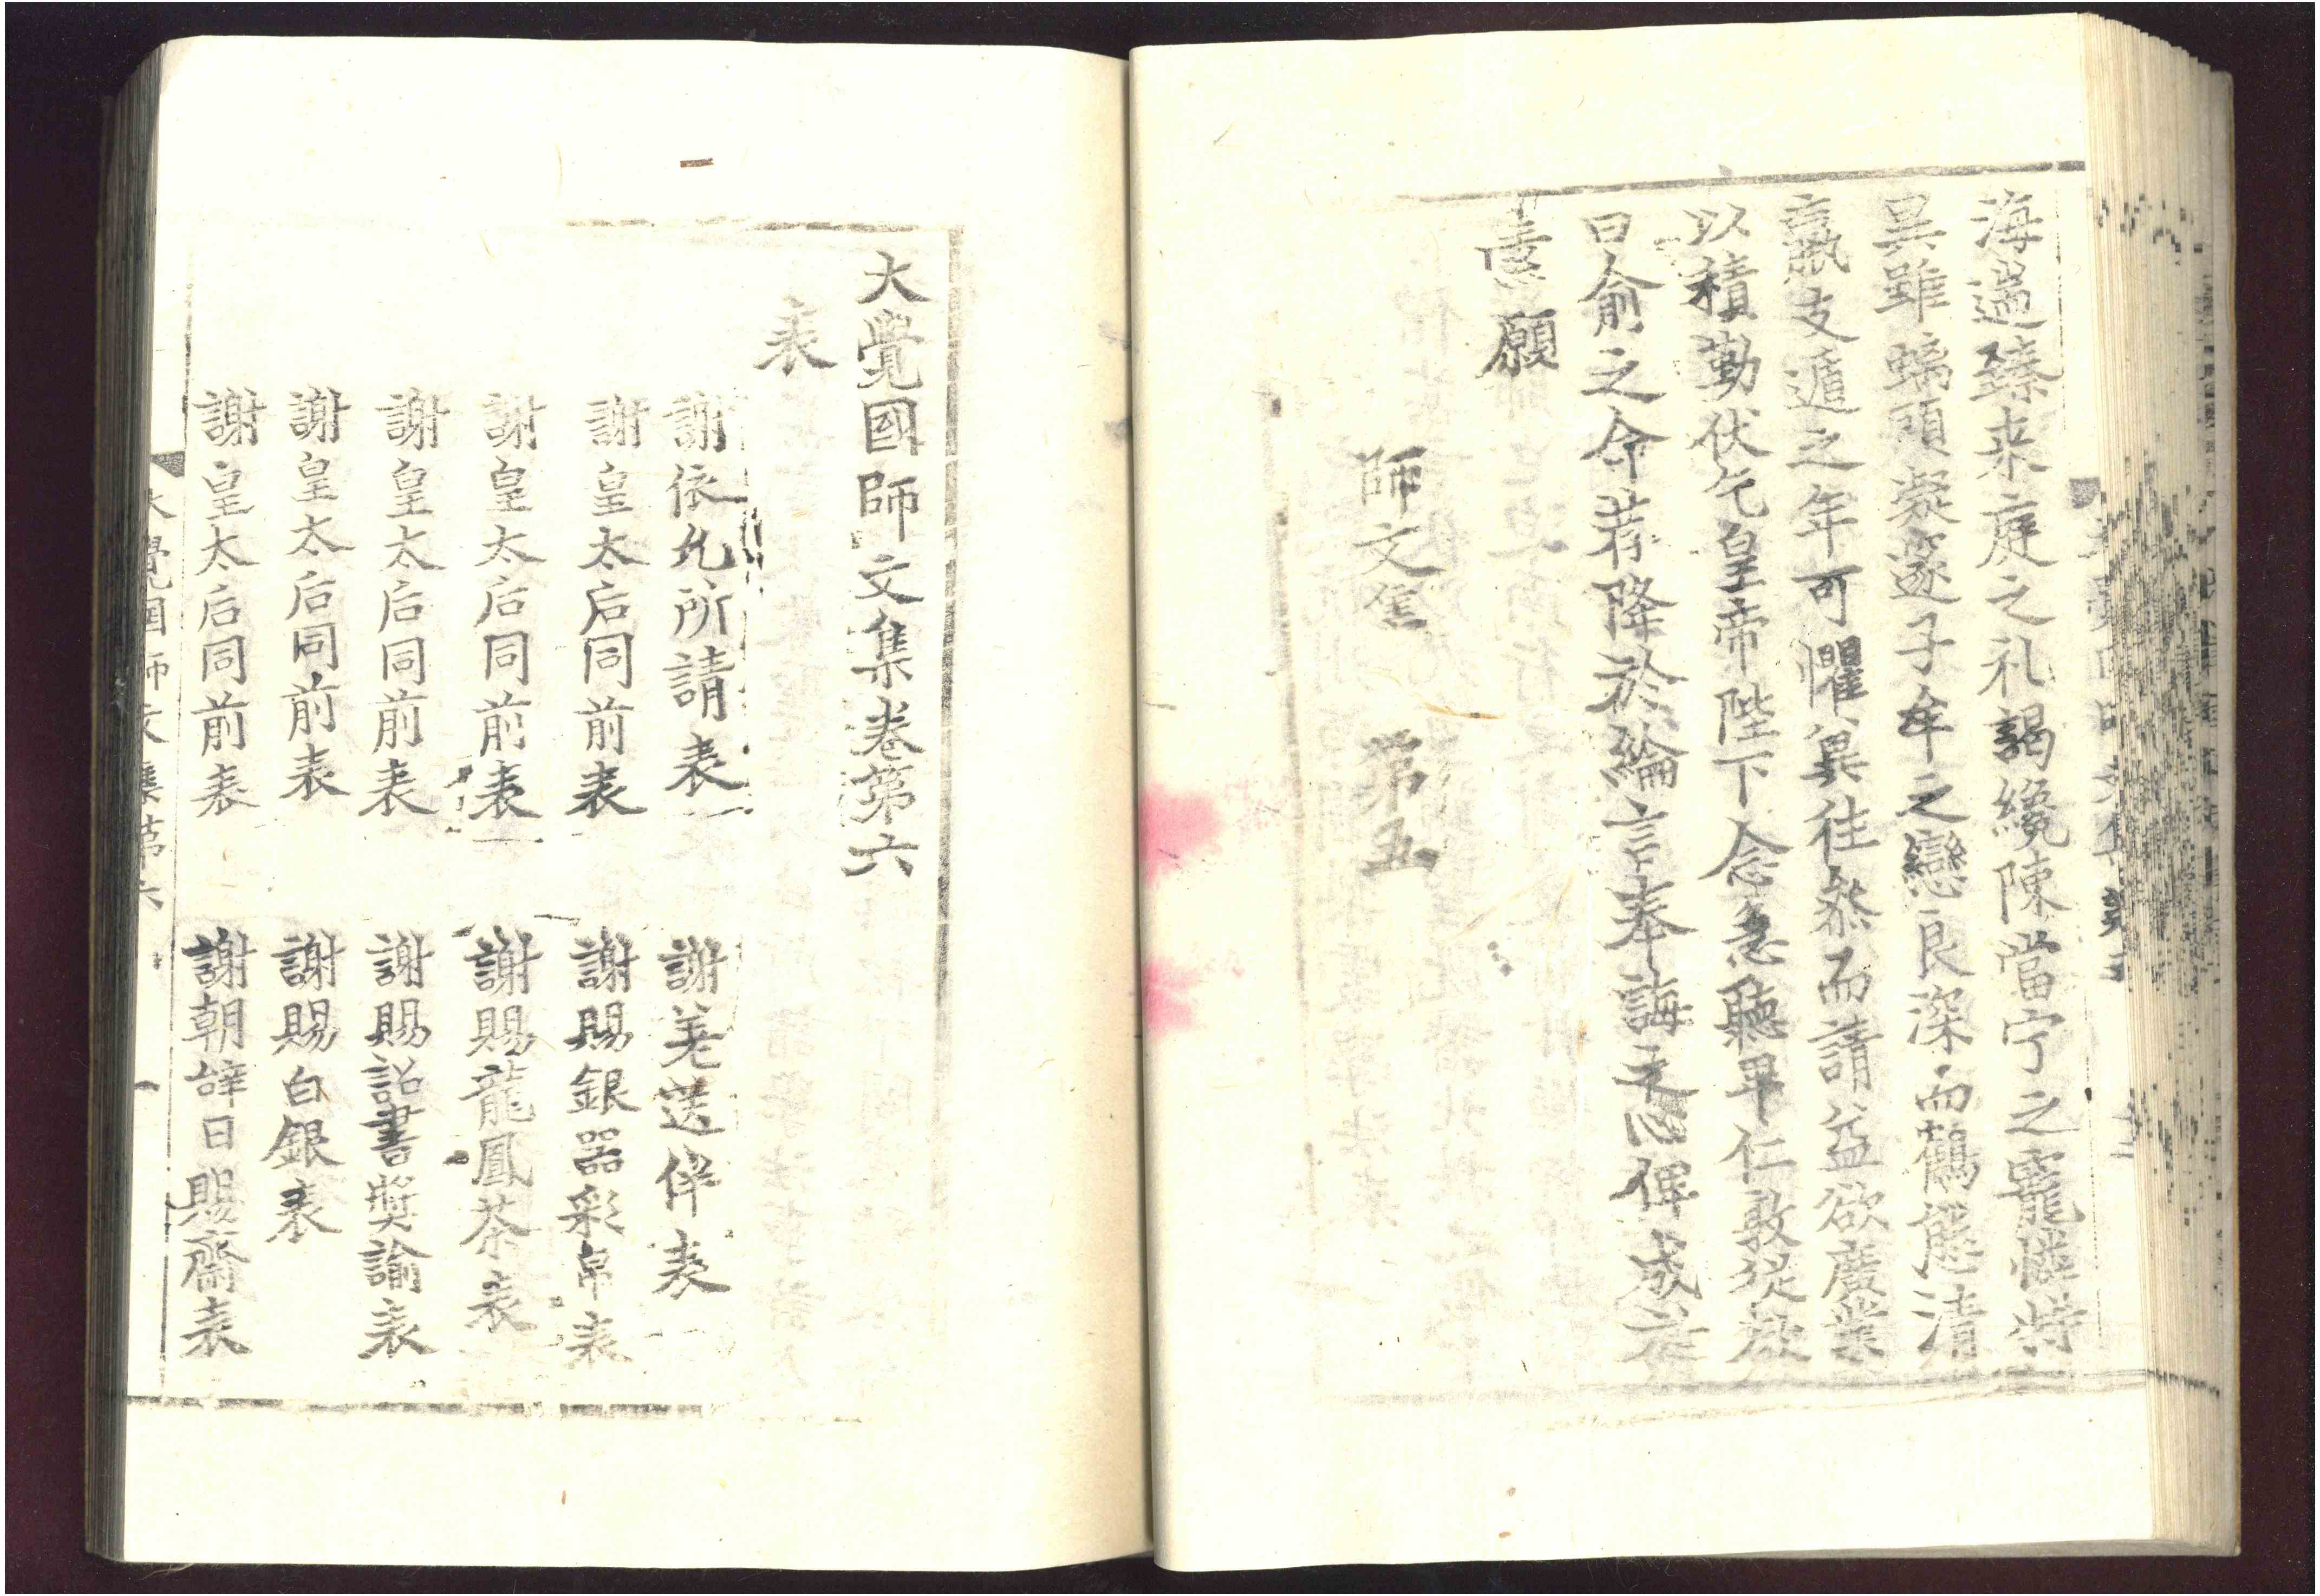 海遥臻来庭之礼謁纔陳當宁之寵憐特
異雖螭頭凝邃子牟之戀良深而鶴態清
羸支遁之年可懼異往然而請益欲廣業
以積勤伏乞皇帝陛下念急聽卑仁敦從欲
曰俞之命荐降於綸言奉誨之心俾成於
素願
師文集 第五
大覺國師文集卷第六
表
謝依允所請表 謝差送伴表
謝皇太后同前表 謝賜銀器彩帛表
謝皇太后同前表 謝賜龍鳳茶表
謝皇太后同前表 謝賜詔書奬諭表
謝皇太后同前表 謝賜白銀表
謝皇太后同前表 謝朝辝日賜齋表
大覺國師文集第六 一